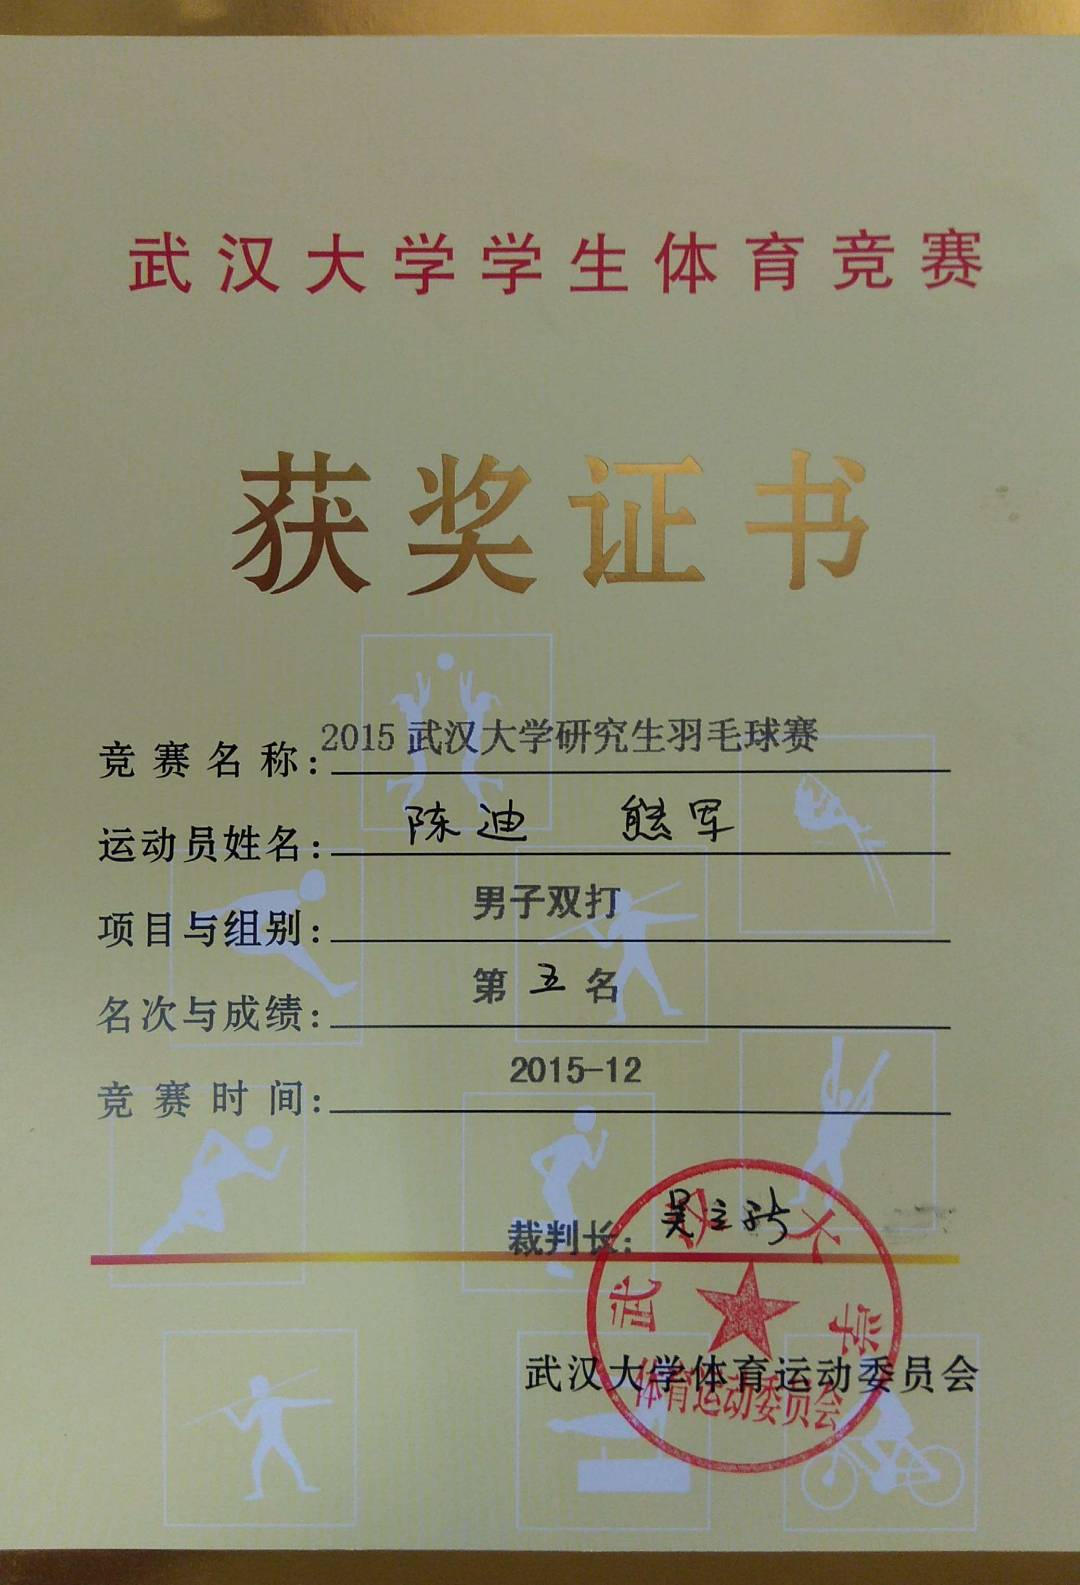 武汉大学学生体育竞赛
获奖证书
竞赛名称: 2015武汉大学研究生羽毛球赛
运动员姓名: 陈迪 熊军
项目与组别: 男子双打
名次与成绩: 第五名
竞赛时间: 2015-12
裁判长: 吴立新
武汉大学
武汉大学体育运动委员会
体育运动委员会